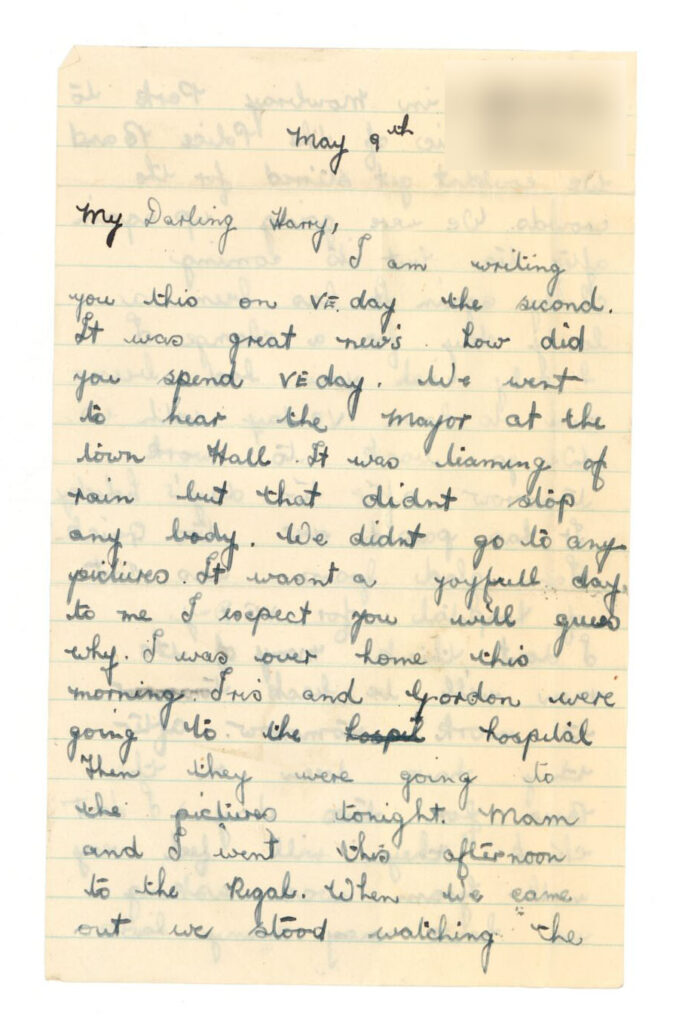 May 9th
My Darling Harry,
I am writing
you this on VE day the second.
It was great news. how did
you spend VE day. We went
to hear the Mayor at the
town Hall. It was teaming of
rain but that didnt stop
any body. We didnt go to any
pictures. It wasnt a joyfull day
to me I expect you will guess
why. I was over home this
morning. Iris and Gordon were
going to the hospil hospital
Then they were going to
the pictures tonight. Mam
and I went this afternoon
to the Regal. When We came
out we stood watching the